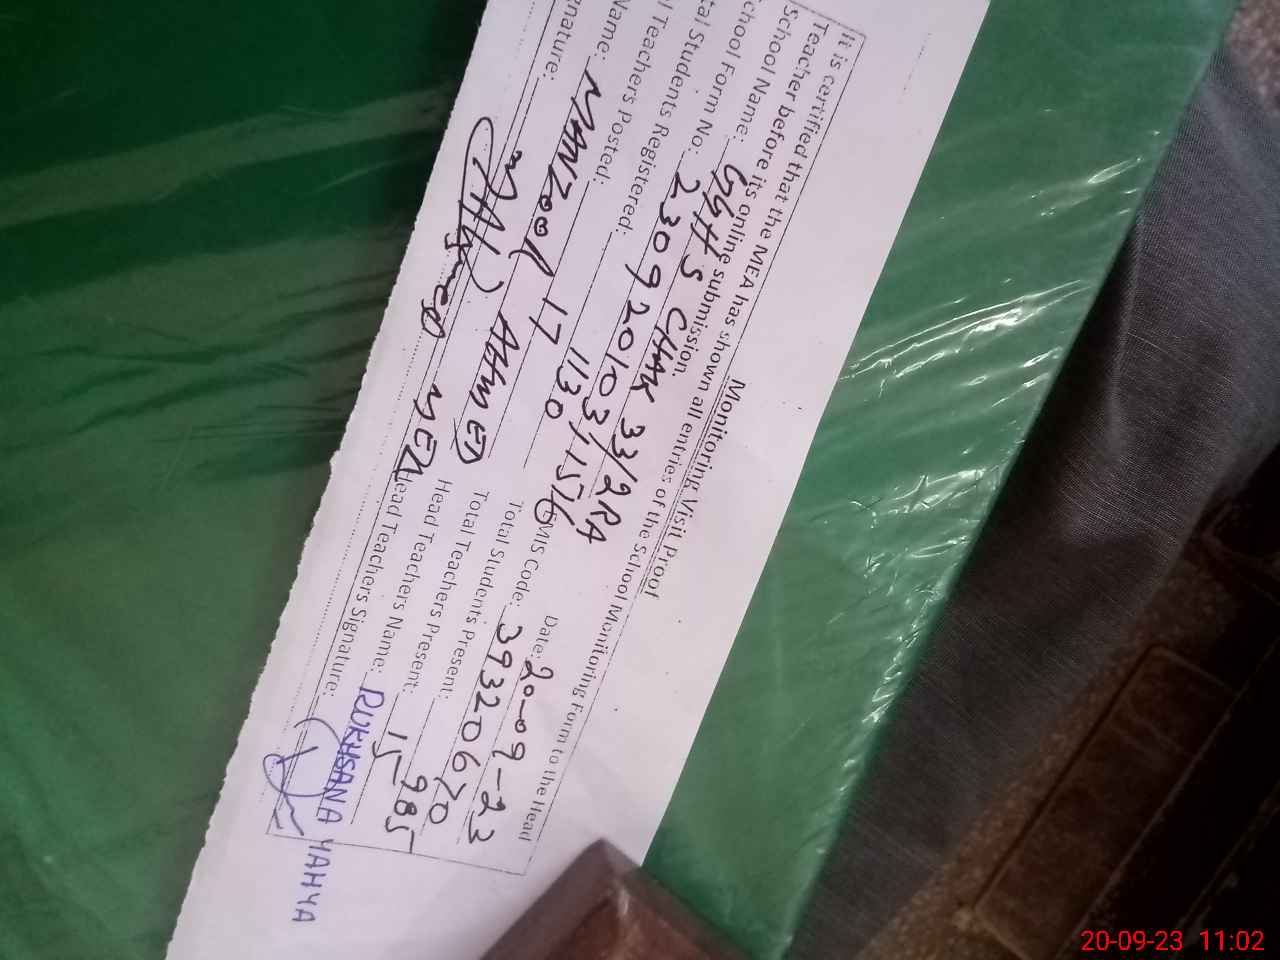 Monitoring Visit Proof
It is certified that the MEA has shown all entries of the School Monitoring Form to the Head
Teacher before its online submission.
School Name: GGHS CHAK 33/2RA Date: 20-09-23
chool Form No: 2309 20103/1516 EMIS Code: 39320670
tal Students Registered: 1130 Total Students Present: 985
l Teachers Posted: 17 Total Teachers Present: 15
Name: MANZOOR AHMED Head Teachers Present: YES
Head Teachers Name: RUKHSANA YAHYA
gnature: Head Teachers Signature:
20-09-23 11:02